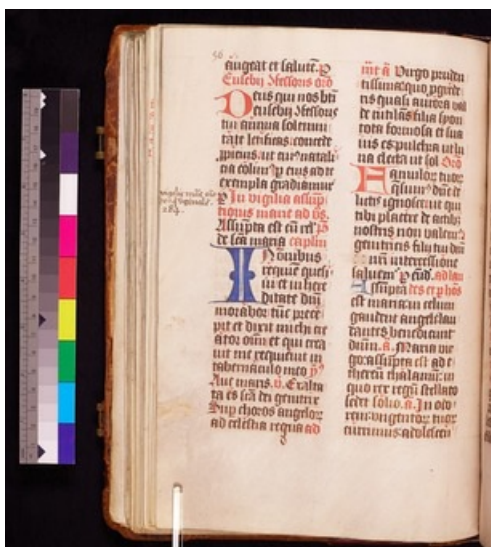 56
augeat et salutē. P
Eusebij ꝯfessoris orō
Deus qui nos bti
eusebij ꝯfessoris
tui annua solenni
tate letificas: concede
ꝓpitius: ut cuiꝰ natali
cia colimꝰ ꝑ eius ad te
exempla gradiamur
In vigilia assūp
tionis marie ad vꝰ.
Assūpta est cū rel
de scā maria caplm
In omnibus
requiē quesi
ui et in here
ditate dnī
morabor tūc prece
pit et dixit michi cre
ator oīm et qui crea
uit me requieuit in
tabernaculo meo
Aue maris. v. Exalta
ta es scā dei genitrix
Sup choros angelorꝝ
ad celestia regna ad
Virgo pruden
tissima quo ꝓgrede
ris quasi aurora val
de rutilās filia syon
tota formosa et sua
uis es pulcra ut lu
na electa ut sol Orō
Famulorꝝ tuorꝝ
qs dnē de
lictis ignosce: ut qui
tibi placere de actibꝰ
nostris non valemꝰ
genitricis filii tui dnī
nrī intercessione
saluemꝰ ꝑ eūd. ad lau
Assūpta des et ꝑ hōs
est maria in celum
gaudent angeli lau
dantes benedicunt
dnm. a. Maria vir
go assūpta est ad e
thereū thalamū: in
quo rex regū stellato
sedet solio. a. In odo
rem ungentorꝝ tuorꝝ
currimus adolescen